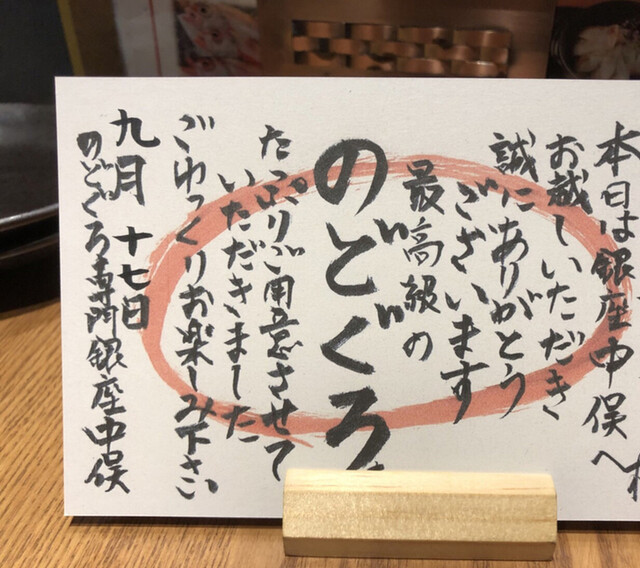 本日は銀座中俣へ
お越しいただき
誠にありがとう
ございます
最高級の
のどぐろ
たっぷりご用意させて
いただきました
ごゆっくりお楽しみ下さい
九月十七日
のどぐろ専門銀座中俣